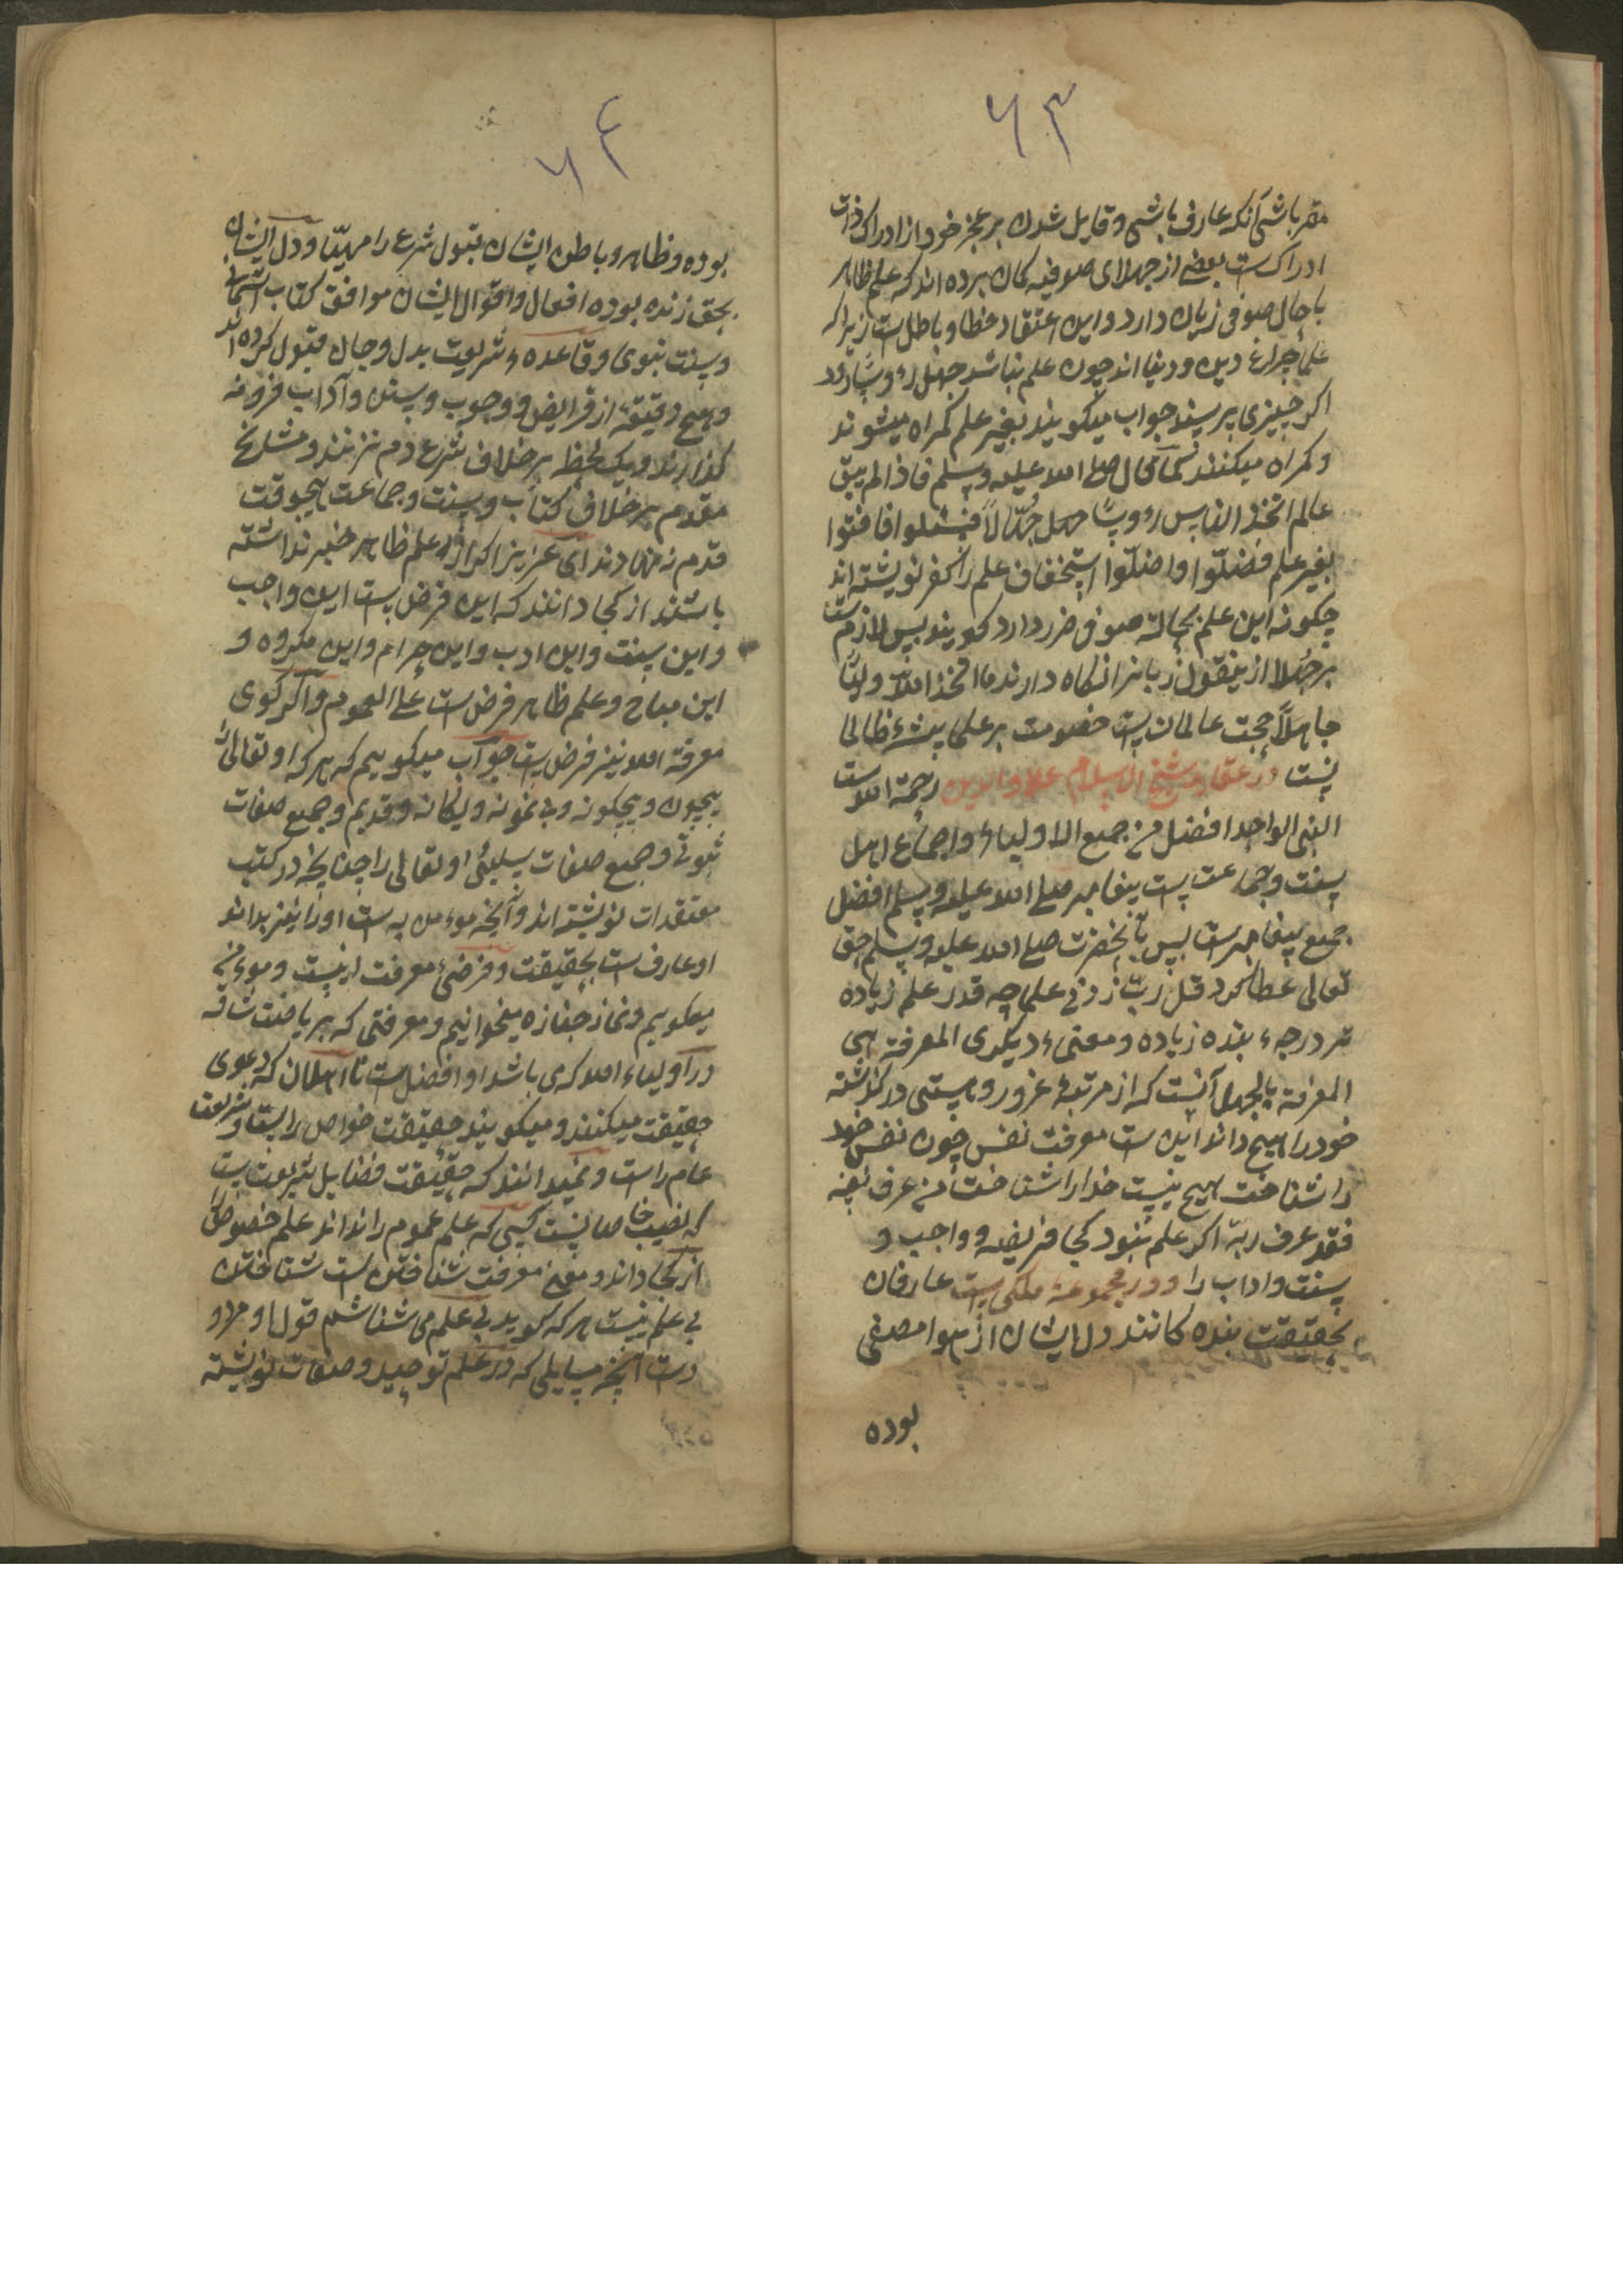 ۶۳
مقر باشی آنکه عارف باشی و قایل شدن بر عجز خود از ادراک ذات
ادراکست بعضے از جهلای صوفیه کمان برده اند که علم ظاهر
با حال صوفی زیان دارد و این اعتقاد خطا و باطل ست زیرا که
علما چراغ دین و دنیا اند چون علم نباشد جهل رءوسًا
اکر چیزی پرسند جواب میکویند بغیر علم کمراه میشوند
و کمراه میکنند کما قال صلے الله علیه وسلم فاذا لم یبق
عالم اتخذ الناس رءوسًا جهالاً فسئلوا فافتوا
بغیر علم فضلّوا واضلّوا استخفاف علم را کفر نوشته اند
چکونه این علم بحالت صوفی ضرر دارد کویند پس لازم ست
بر جهلا ازینقول زبانرا نکاه دارند ما اتخذ الله ولیًّا
جاهلاً حجت عالمان ست خصومت بر علما پیشهٔ ظالما
نیست در عقاید شیخ الاسلام علاء والدین رحمة الله ست
النبی الواحد افضل من جمیع الاولیاء واجماع اهل
سنت و جماعت ست پیغامبر صلے الله علیه وسلم افضل
جمیع پیغامبرست پس بآنحضرت صلے الله علیه وسلم حق
تعالی عطا کرد قل ربّ زدنی علما چه قدر علم زیاده
تر درجهء بنده زیاده و معنیء دیکری المعرفة هی
المعرفة بالجهل آنست که از مرتبهٔ غرور و هستی در کذشته
خود را هیچ داند این ست معرفت نفس چون نفس خود
را شناخت هیچ نیست خدا را شناخت من عرف نفسه
فقد عرف ربّه اکر علم نبود کجا فریضه و واجب و
سنت و اداب را و در مجموعهٔ ملکی ست عارفان
بحقیقت بنده کانند دل ایشان از هوا مصفی
بوده
۶۴
بوده و ظاهر و باطن ایشان بقبول شرع را مهیّا و دل ایشان
بحق زنده بوده افعال و اقوال ایشان موافق کتاب
و سنت نبوی و قاعدهء شریعت بدل و جان قبول کرده اند
و هیچ دقیقهٔ از فرایض و وجوب و سنن و آداب فرو نه
کذارند و یک لحظه بر خلاف شرع دم نزنند و مشایخ
مقدم بر خلاف کتاب و سنت و جماعت هیچوقت
قدم نه نهادند ای عزیز اکر از علم ظاهر خبر نداشته
باشند از کجا دانند که این فرض ست این واجب
و این سنت و این ادب و این حرام و این مکروه و
این مباح و علم ظاهر فرض ست علے العموم و اکر کوی
معرفة الله نیز فرض ست جواب میکوییم که هر که او تعالیٰ را
بیچون و بیچکونه و بی نمونه و یکانه و قدیم و جمیع صفات
ثبوتی و جمیع صفات سلبی او تعالی را چنانچه در کتب
معتقدات نوشته اند و آنچه موءمن به ست او را نیز بداند
او عارف ست بحقیقت و فرضیٔ معرفت اینست و موءمن
میکوییم و نماز جنازه میخوانیم و معرفتی که بریاضت شاقه
در اولیاء الله که می باشد او افضل ست نااهلان که دعوی
حقیقت میکنند و میکویند حقیقت خواص راست و شریعت
عام راست و نمیدانند که حقیقت فضایل شریعت ست
که نصیب خاصانست کسی که علم عموم را نداند علم خصوص را
از کجا داند و معنے معرفت شناختن ست شناختن
بی علم نیست هر که کوید بی علم می شناسم قول او مردو
دست آنچه مسایلی که در علم توحید و صفات نوشته